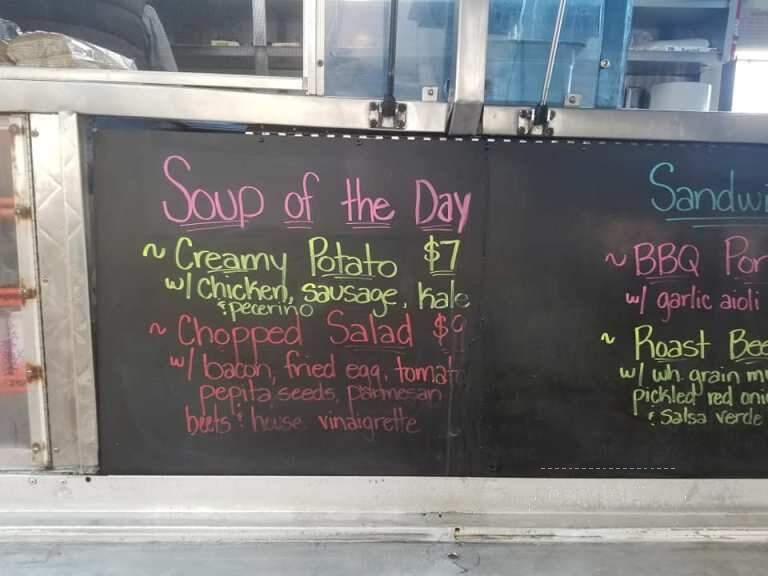 Soup of the Day
~ Creamy Potato $7
w/ chicken, sausage, kale
& pecerino
~ Chopped Salad $9
w/ bacon, fried egg, tomat
pepita seeds, parmesan
beets & house vinaigrette
Sandwi
~ BBQ Por
w/ garlic aioli
~ Roast Bee
w/ wh. grain mu
pickled red oni
& salsa verde